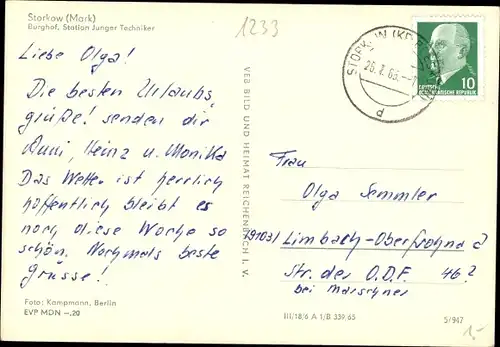 Storkow (Mark)
Burghof, Station Junger Techniker
1233
Liebe Olga!
Die besten Urlaubs
grüße! senden dir
Anni, Heinz u. Monika
Das Wetter ist herrlich
hoffentlich bleibt es
noch diese Woche so
schön. Nochmals beste
grüsse!
Foto: Kampmann, Berlin
EVP MDN –.20
VEB BILD UND HEIMAT REICHENBACH I. V.
STORKOW (KR
10
DEUTSCHE
DEMOKRATISCHE REPUBLIK
Frau
Olga Semmler
Limbach-Oberfrohna
Str. der O.D.F. 46
bei Marschner
III/18/6 A 1/B 339 65
5/947